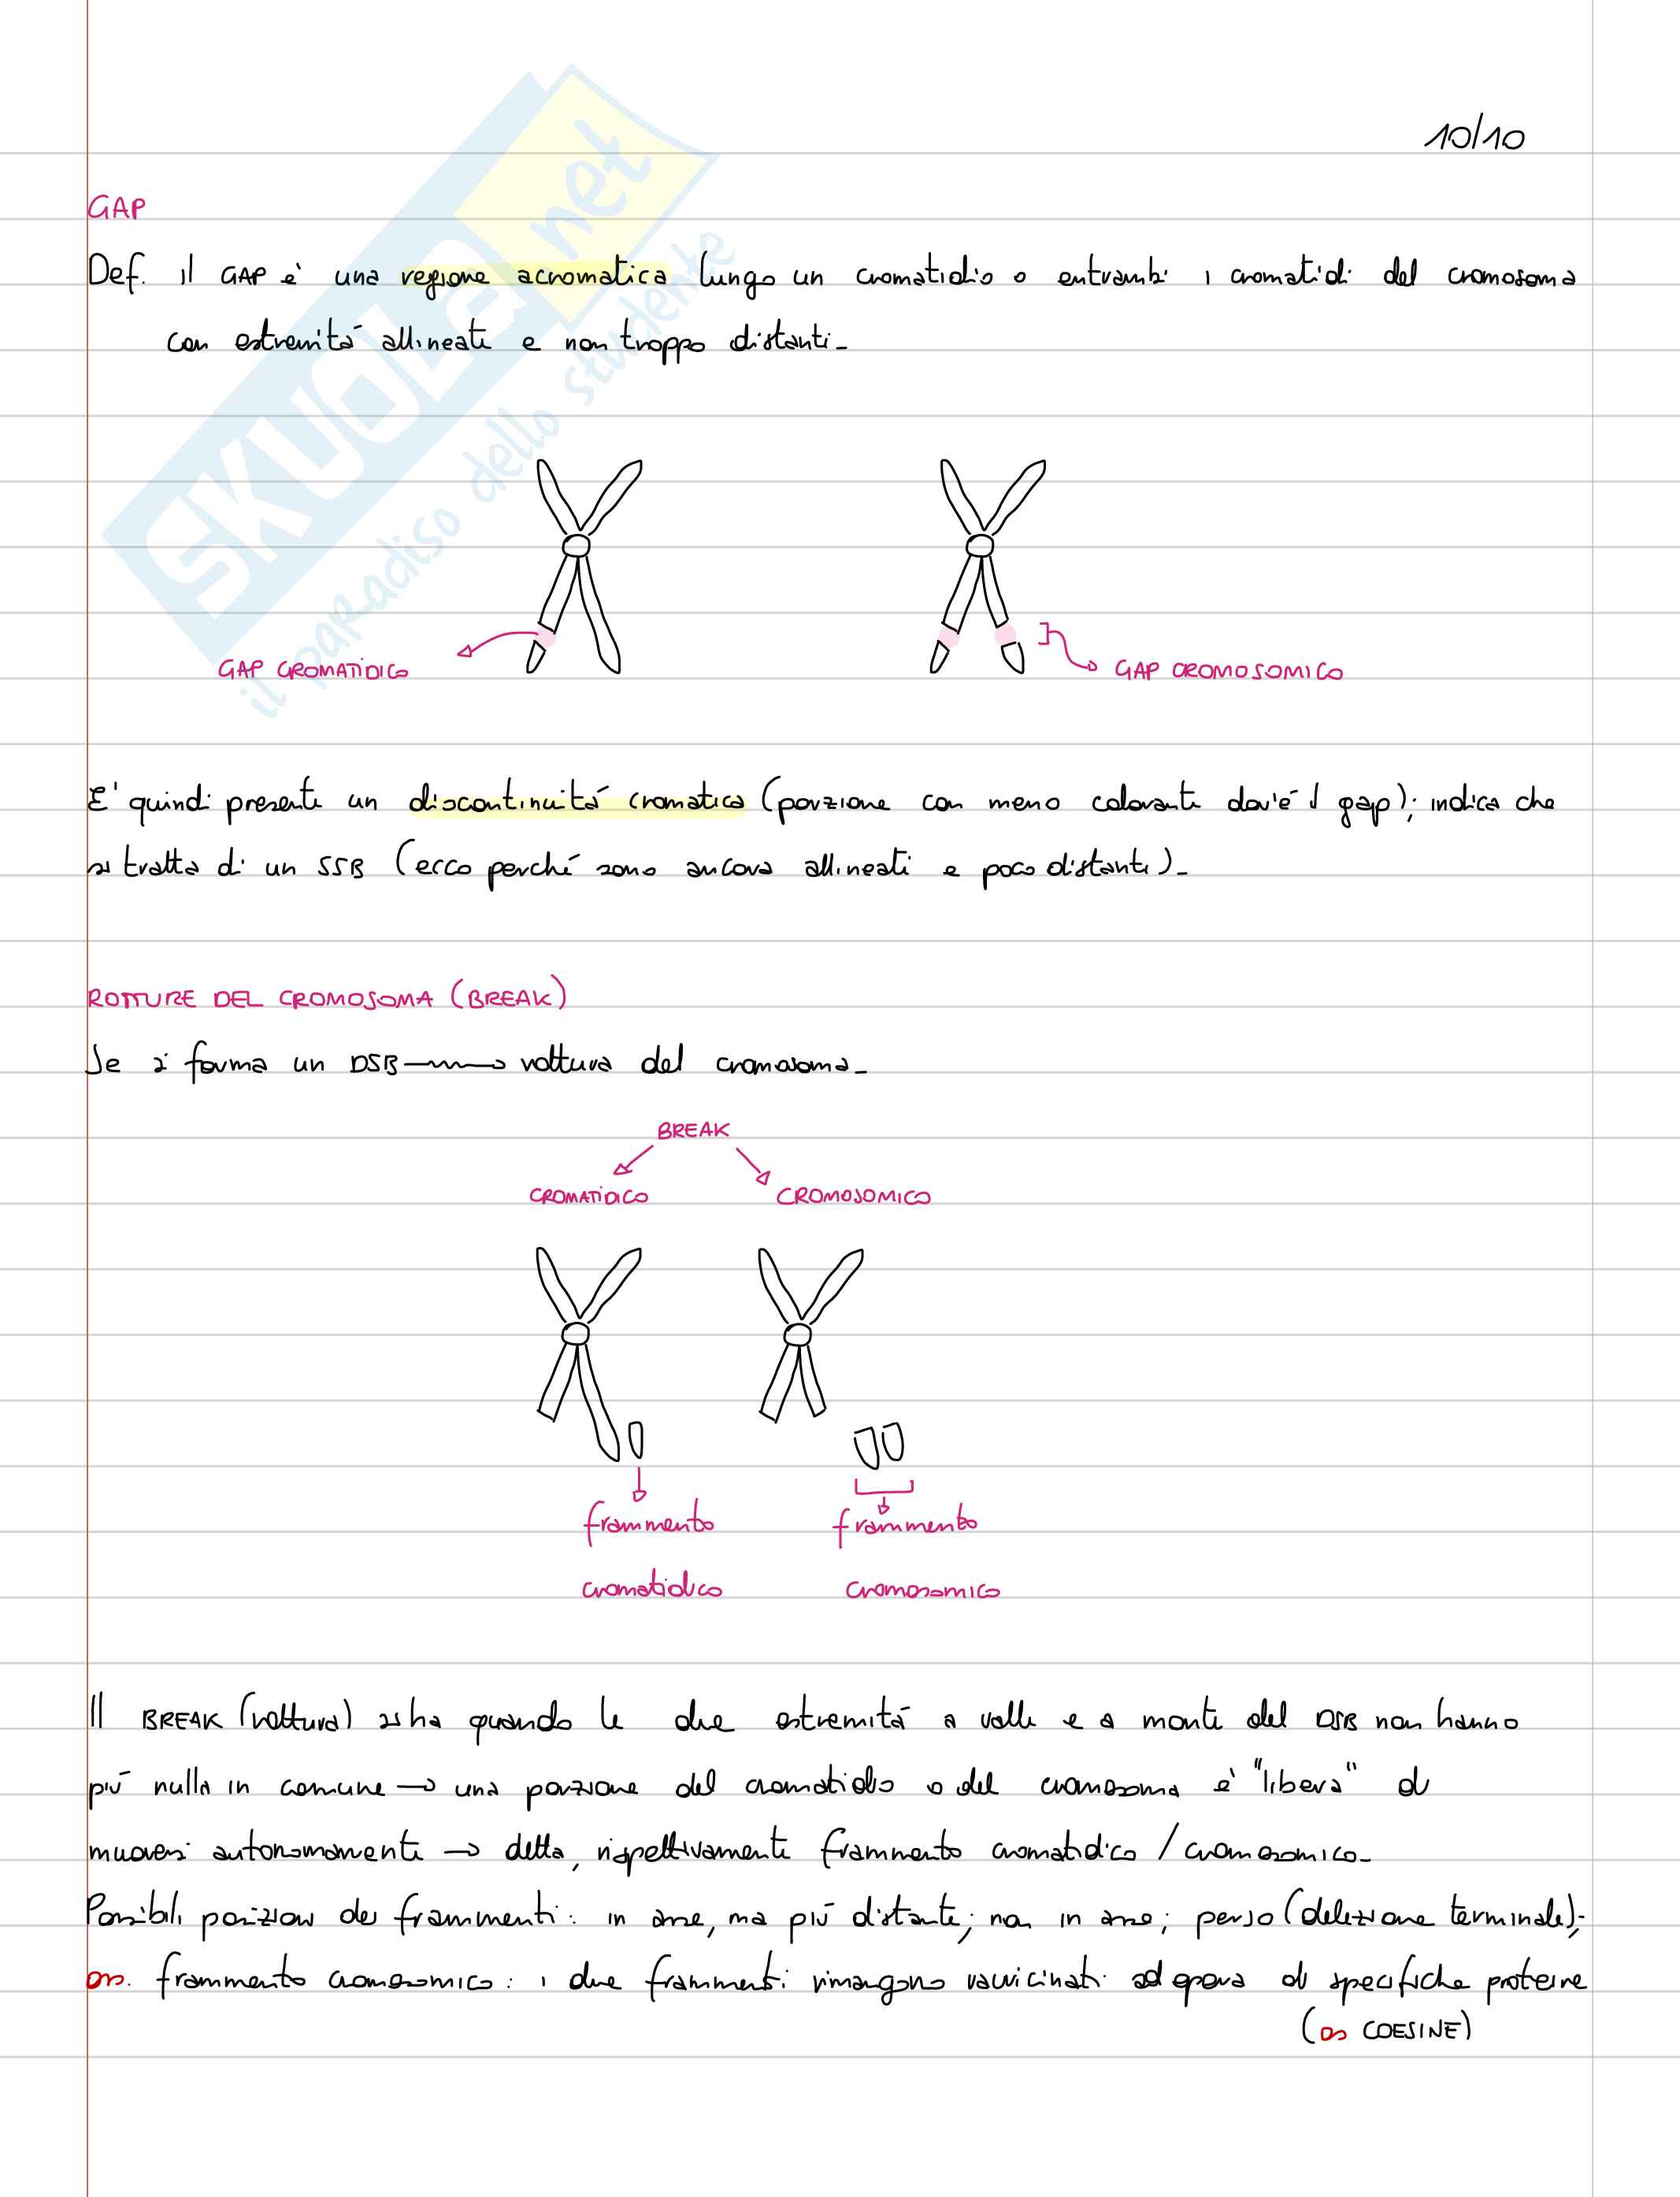 10/10
GAP
Def. il GAP è una regione acromatica lungo un cromatidio o entrambi i cromatidi del cromosoma
con estremità allineate e non troppo distanti_
GAP CROMATIDICO
GAP CROMOSOMICO
E' quindi presente un discontinuità cromatica (porzione con meno colorante dov'è il gap); indica che
si tratta di un SSB (ecco perché sono ancora allineati e poco distanti)_
ROTTURE DEL CROMOSOMA (BREAK)
Se si forma un DSB → rottura del cromosoma_
BREAK
CROMATIDICO CROMOSOMICO
frammento frammento
cromatidico cromosomico
Il BREAK (rottura) si ha quando le due estremità a valle e a monte del DSB non hanno
più nulla in comune → una porzione del cromatidio o del cromosoma è "libera" di
muoversi autonomamente → detta, rispettivamente frammento cromatidico / cromosomico_
Possibili posizioni dei frammenti: in asse, ma più distante; non in asse; perso (delezione terminale);
oss. frammento cromosomico: i due frammenti rimangono ravvicinati ad opera di specifiche proteine
(es COESINE)
SKUOLA.net
il paradiso dello studente